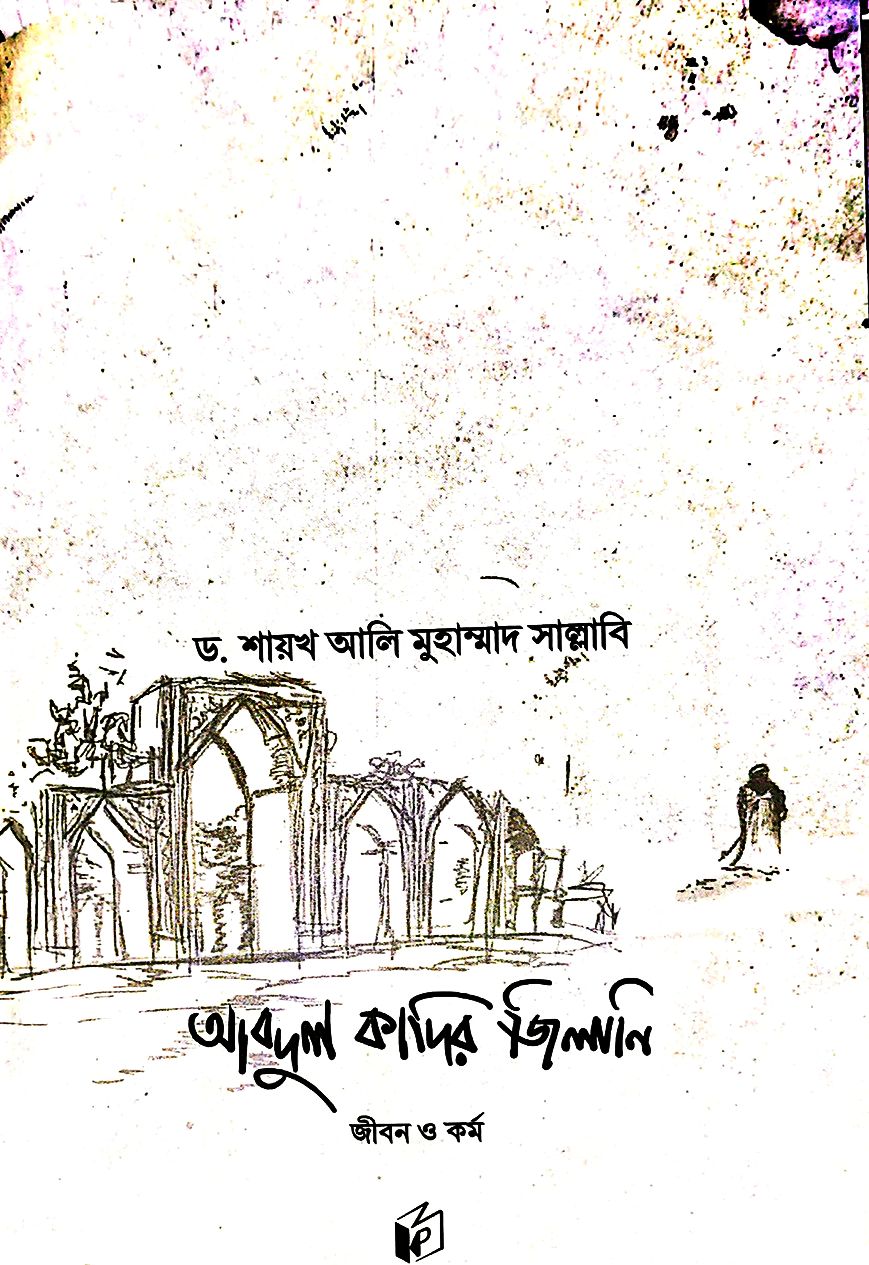 ড. শায়খ আলি মুহাম্মাদ সাল্লাবি
আবদুল কাদির জিলানি
জীবন ও কর্ম